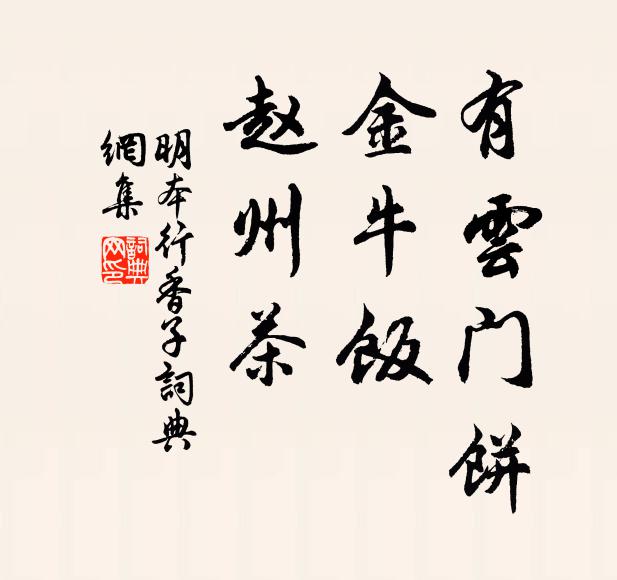 有雲门餅
金牛飯
赵州茶
明本行香子詞典
網集
詞典
网印